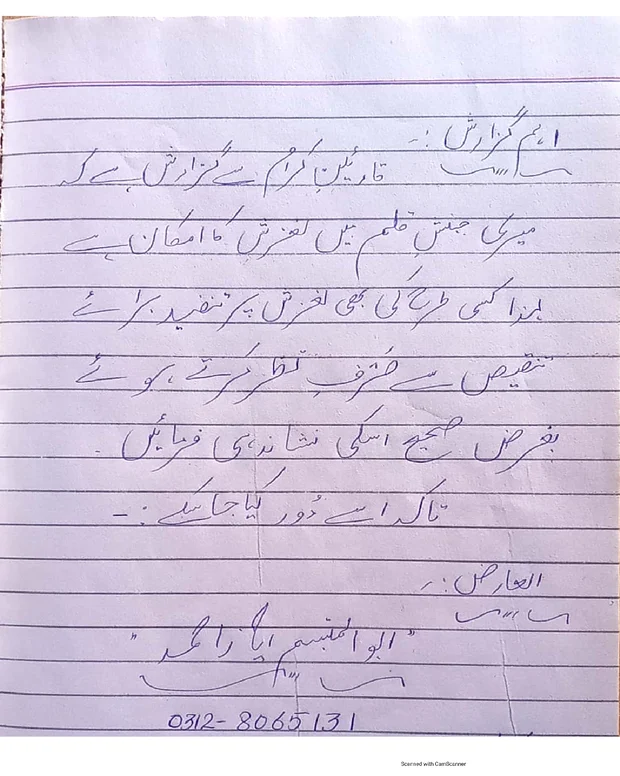 اہم گزارش :-
قارئینِ کرام سے گزارش ہے کہ
میری جنبشِ قلم میں لغزش کا امکان ہے
لہذا کسی طرح کی بھی لغزش پر تنقید برائے
تنقیص سے صَرفِ نظر کرتے ہوئے
بغرض صحیح اسکی نشاندہی فرمائیں۔
تاکہ اسے دُور کیا جا سکے :-
العارض :-
"ابو المتبسم ایاز احمد"
0312-8065131
Scanned with CamScanner